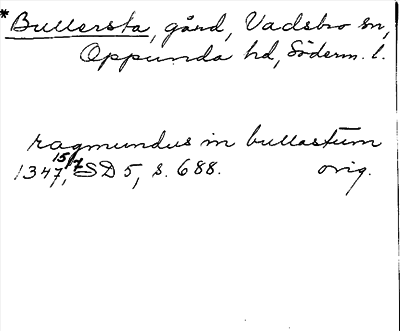 *Bullersta, gård, Vadsbro sn,
Oppunda hd, Söderm. l.
ragmundus in bullastum
1347 15/7, SD 5, s. 688. orig.